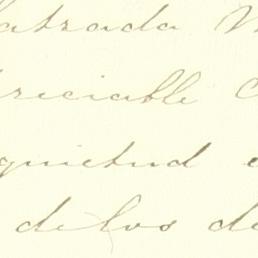 atrada
reciable
quietud
de los de